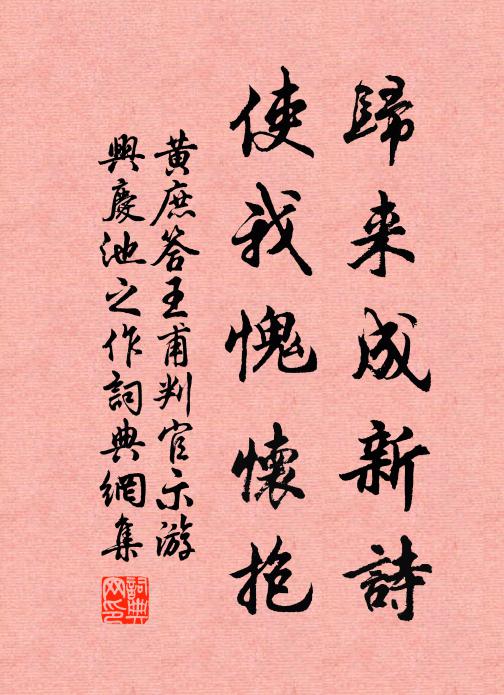 歸来成新詩
使我愧懷抱
黃庶答王甫判官示游
興慶池之作詞典網集
詞典
网印